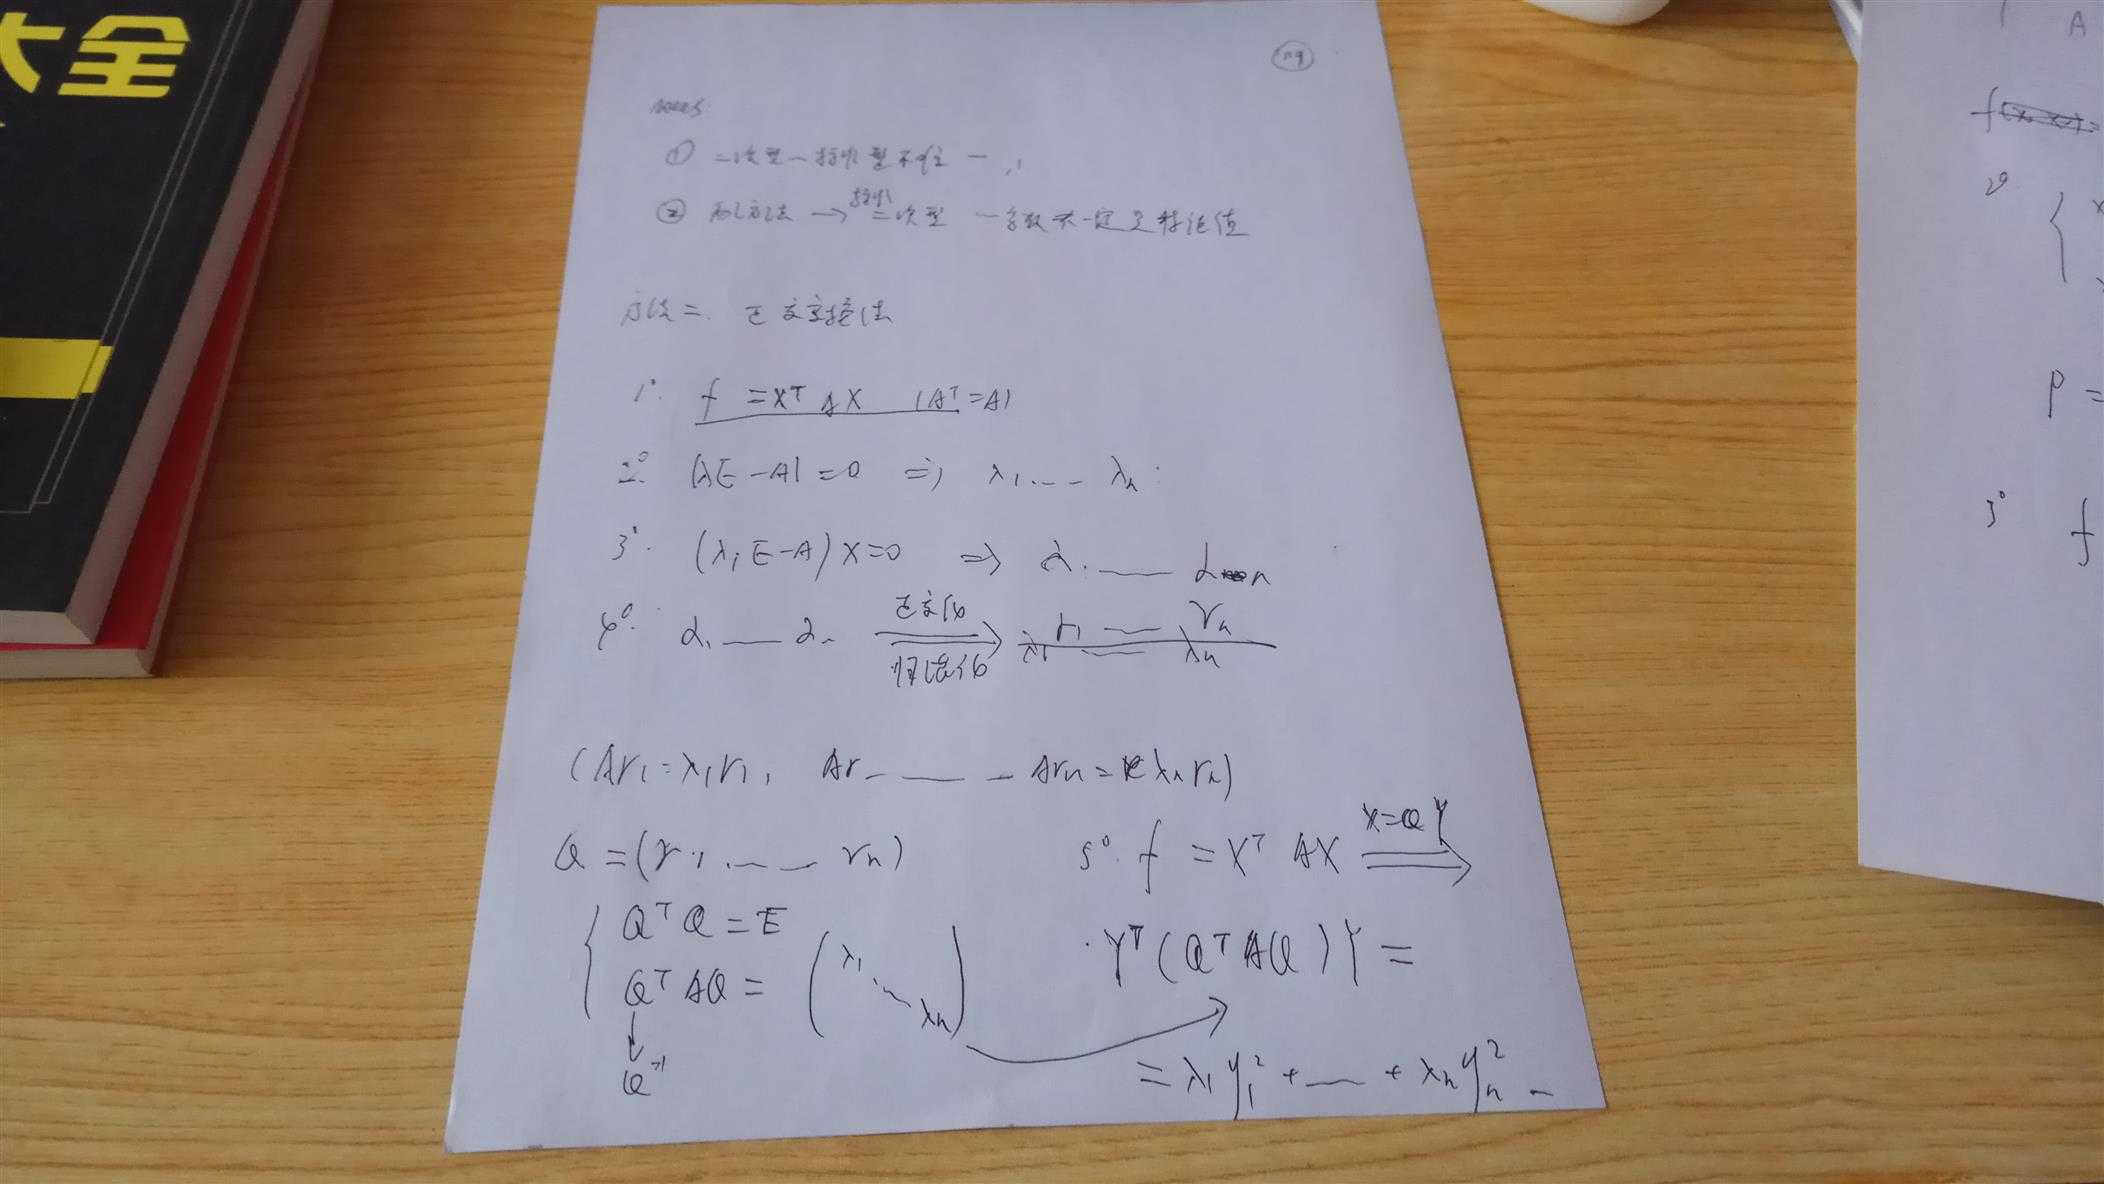 大全
119
notes
① 二次型—标准型不唯一
② 配方法 → 标准二次型 —系数不一定是特征值
方法二. 正交变换法
1°. f = XᵀAX (Aᵀ=A)
2°. |λE-A|=0 ⇒ λ₁ ... λₙ
3°. (λᵢE-A)X=0 ⇒ α₁ — αₙ
4°. α₁ — αₙ 正交化 规范化 ⇒ γ₁ — γₙ
λ₁ — λₙ
(Aγ₁=λ₁γ₁, Aγ — Aγₙ=λₙγₙ)
Q=(γ₁, — γₙ)
QᵀQ=E
QᵀAQ= (λ₁ ⋱ λₙ)
↓
Q⁻¹
5°. f = XᵀAX X=QY ⇒
Yᵀ(QᵀAQ)Y =
= λ₁y₁² + — + λₙyₙ²
A
f
2°
{ x
P =
3° f